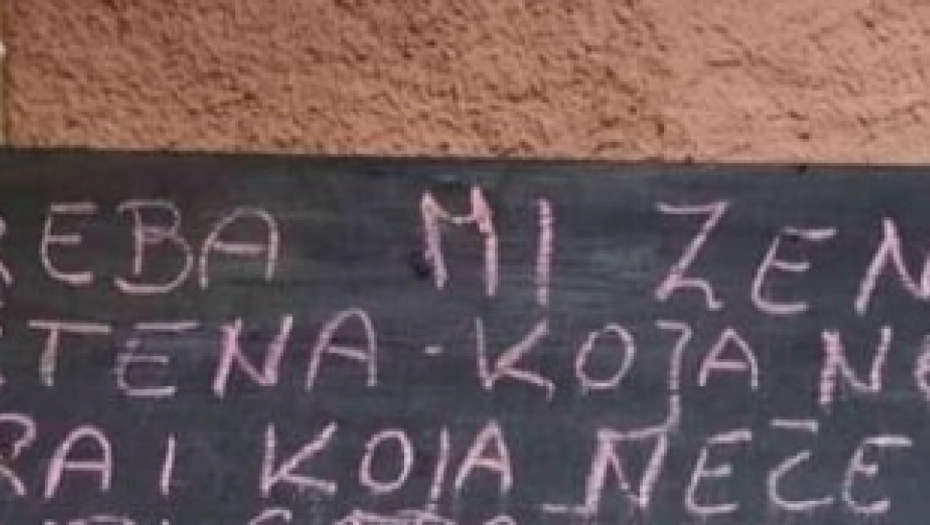 REBA MI ZEN
TENA - KOJA NE
RA I KOJA NEČE